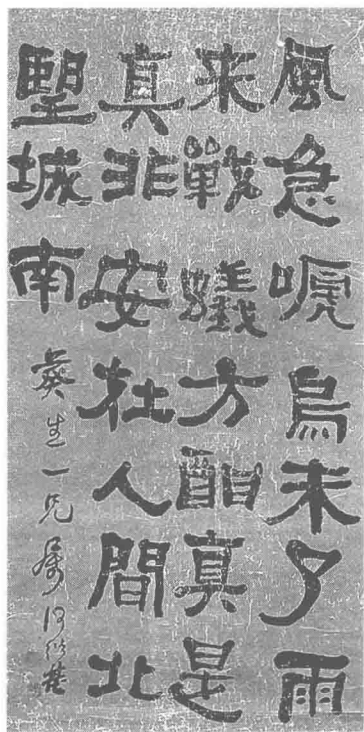 風急嗁烏未了雨
来戰蟻方酣真是
真非安在人間北
朢城南
葵生一兄屬何紹基